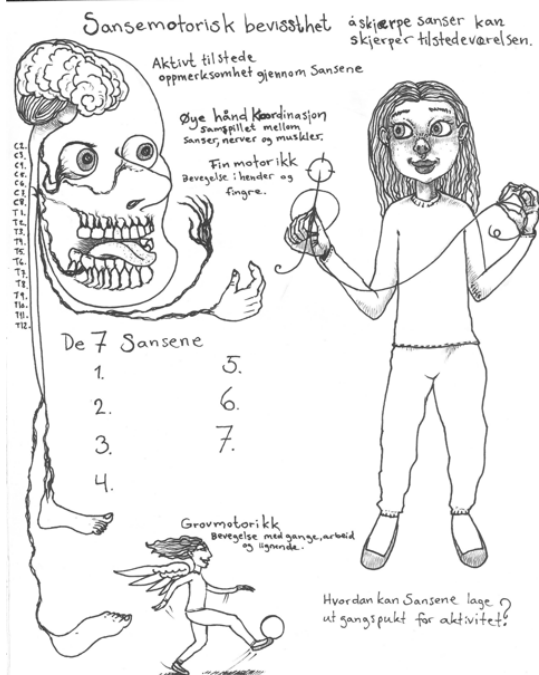 Sansemotorisk bevissthet
å skjærpe sanser kan
skjerper tilstedeværelsen.
Aktivt tilstede
oppmerksomhet gjennom Sansene
Øye hånd koordinasjon
samspillet mellom
Sanser, nerver og muskler.
Fin motorikk
Bevegelse i hender og
fingre.
C2.
C3.
C4.
C5.
C6.
C7.
C8.
T1.
T2.
T3.
T4.
T5.
T6.
T7.
T8.
T9.
T10.
T11.
T12.
De 7 Sansene
1.
2.
3.
4.
5.
6.
7.
Grovmotorikk
Bevegelse med gange, arbeid
og lignende.
Hvordan kan Sansene lage
ut gangspukt for aktivitet?